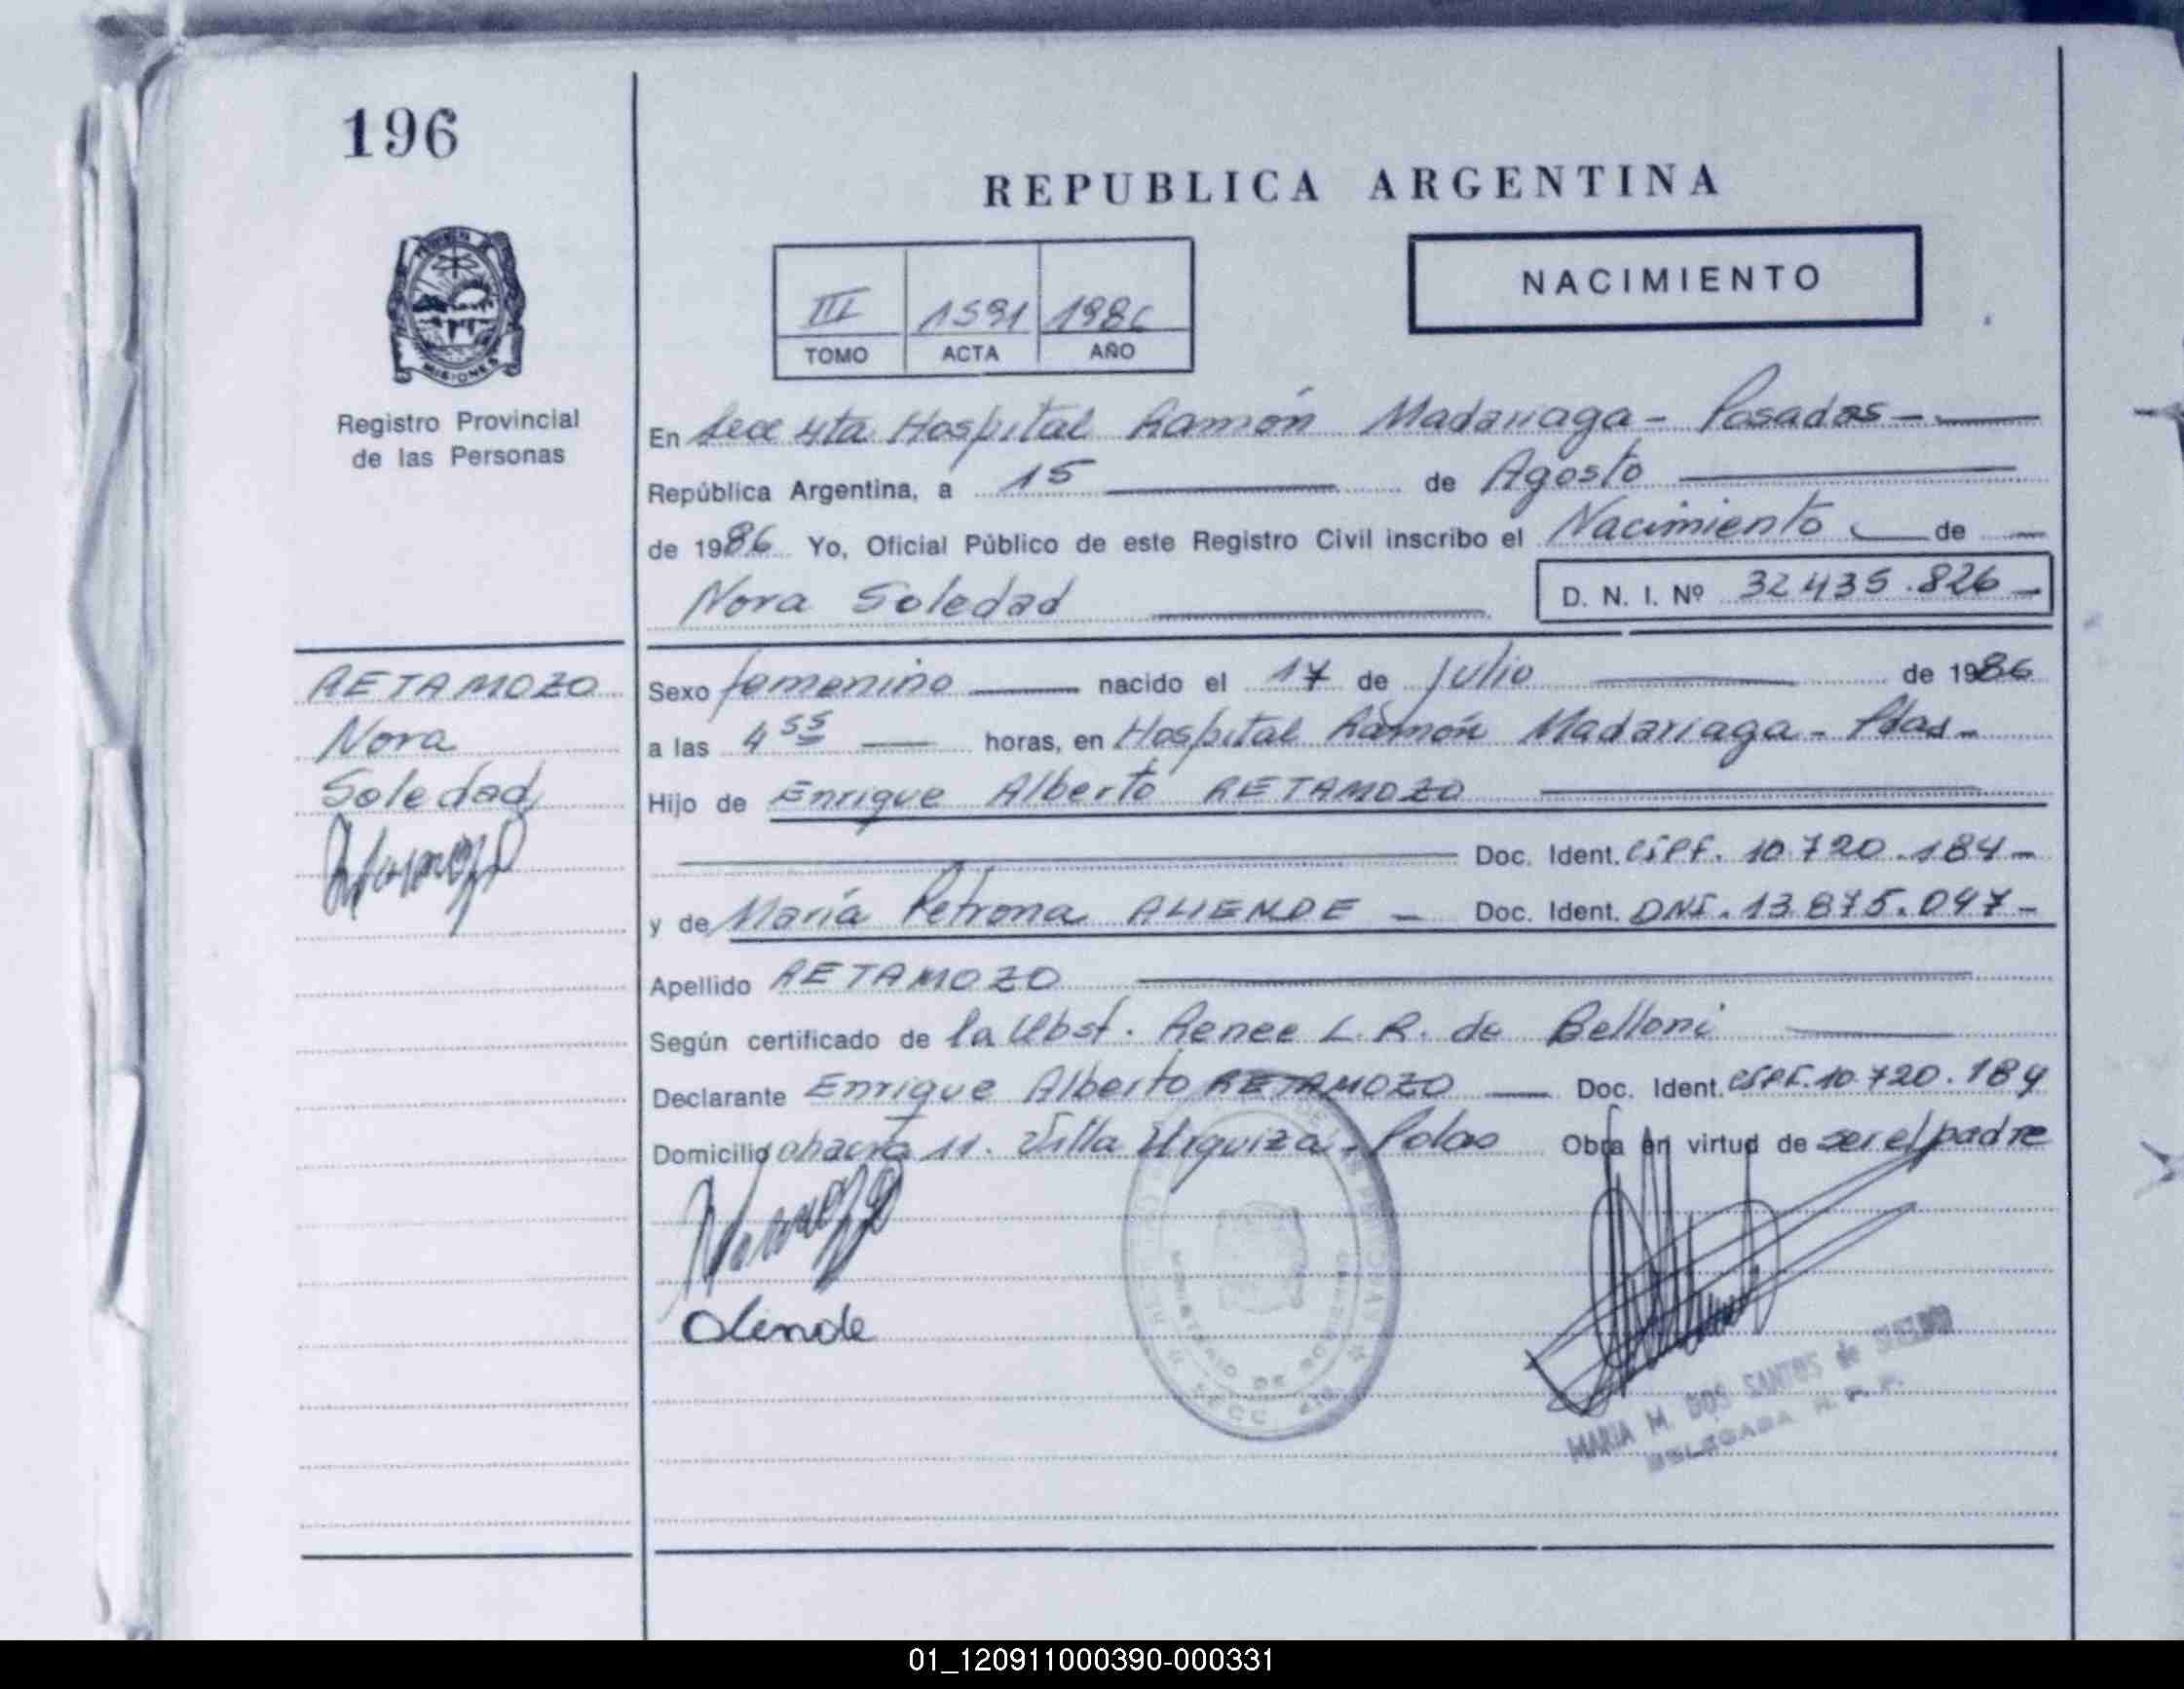 196
REPUBLICA ARGENTINA
NACIMIENTO
III 1591 1986
TOMO ACTA AÑO
MISIONES
Registro Provincial
de las Personas
En Secc 4ta Hospital Ramón Madariaga - Posadas -
República Argentina, a 15 de Agosto
de 1986 Yo, Oficial Público de este Registro Civil inscribo el Nacimiento de
Nora Soledad D. N. I. Nº 32.435.826
RETAMOZO
Nora
Soledad
Sexo femenino nacido el 17 de Julio de 1986
a las 4 55 horas, en Hospital Ramón Madariaga - Pdas -
Hijo de Enrique Alberto RETAMOZO
Doc. Ident. CIPF. 10.720.184 -
y de María Petrona ALIENDE - Doc. Ident. DNI. 13.875.047 -
Apellido RETAMOZO
Según certificado de la Obst. Renee L. R. de Belloni
Declarante Enrique Alberto RETAMOZO Doc. Ident. CIPF. 10.720.184
Domicilio chacra 11. Villa Urquiza - Pdas Obra en virtud de ser el padre
MINISTERIO DE GOBIERNO
MARIA M. DOS SANTOS de
DELEGADA R. P. P.
01_120911000390-000331